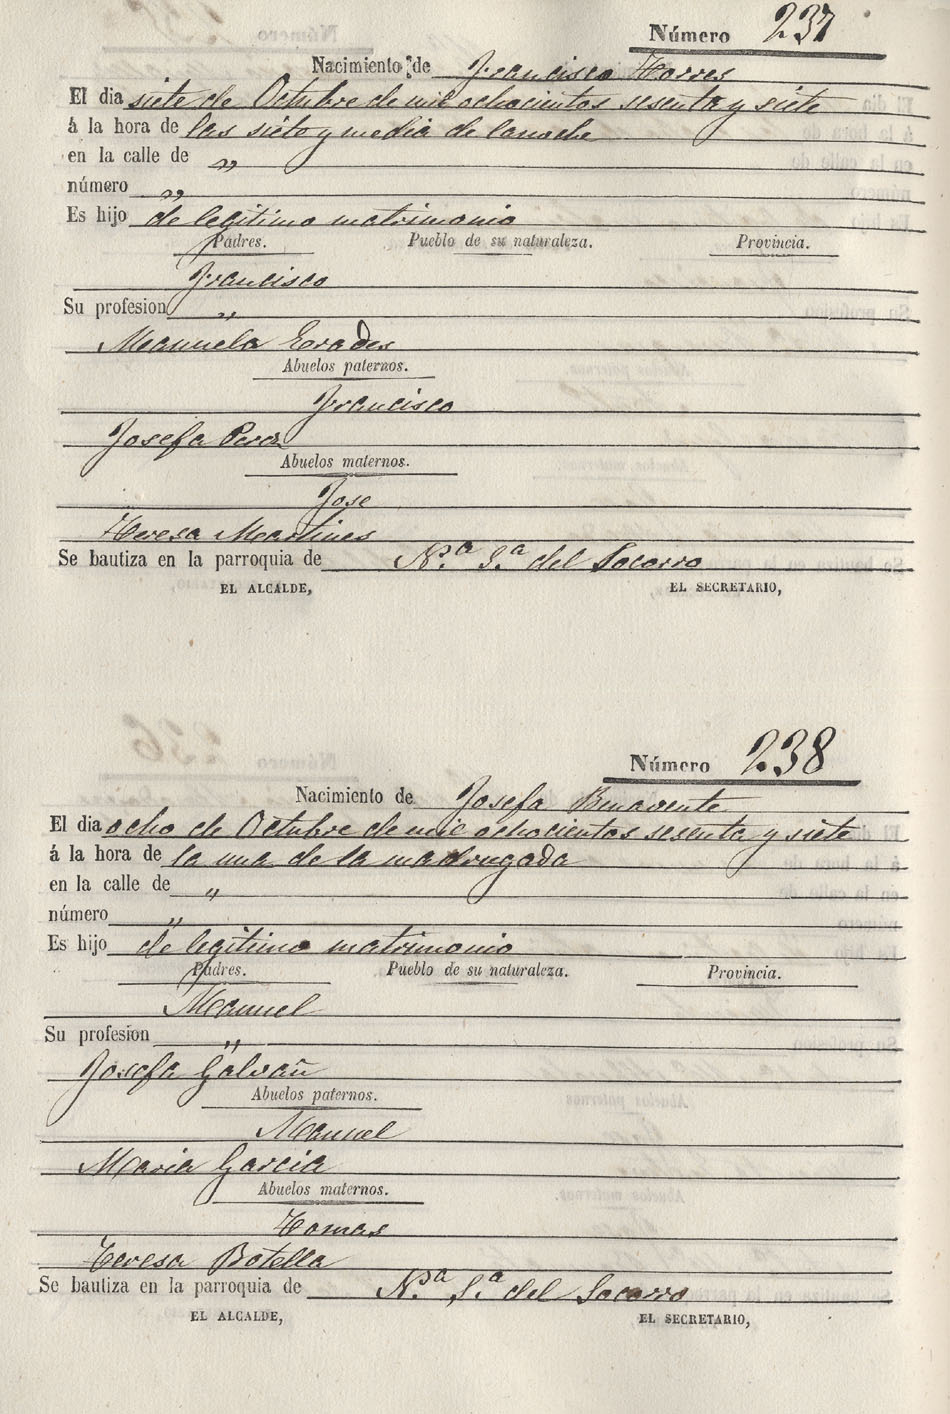 Número 237
Nacimiento de Francisco Torres
El dia siete de Octubre de mil ochocientos sesenta y siete
á la hora de las siete y media de la noche
en la calle de „
número „
Es hijo de legitimo matrimonio
Padres. Pueblo de su naturaleza. Provincia.
Francisco
Su profesion „
Manuela Erades
Abuelos paternos.
Francisco
Josefa Perez
Abuelos maternos.
Jose
Teresa Martines
Se bautiza en la parroquia de N.ª S.ª del Socorro
EL ALCALDE, EL SECRETARIO,
Número 238
Nacimiento de Josefa Benavente
El dia ocho de Octubre de mil ochocientos sesenta y siete
á la hora de la una de la madrugada
en la calle de „
número „
Es hijo de legitimo matrimonio
Padres. Pueblo de su naturaleza. Provincia.
Manuel
Su profesion „
Josefa Galvañ
Abuelos paternos.
Manuel
Maria Garcia
Abuelos maternos.
Tomas
Teresa Botella
Se bautiza en la parroquia de N.ª S.ª del Socorro
EL ALCALDE, EL SECRETARIO,